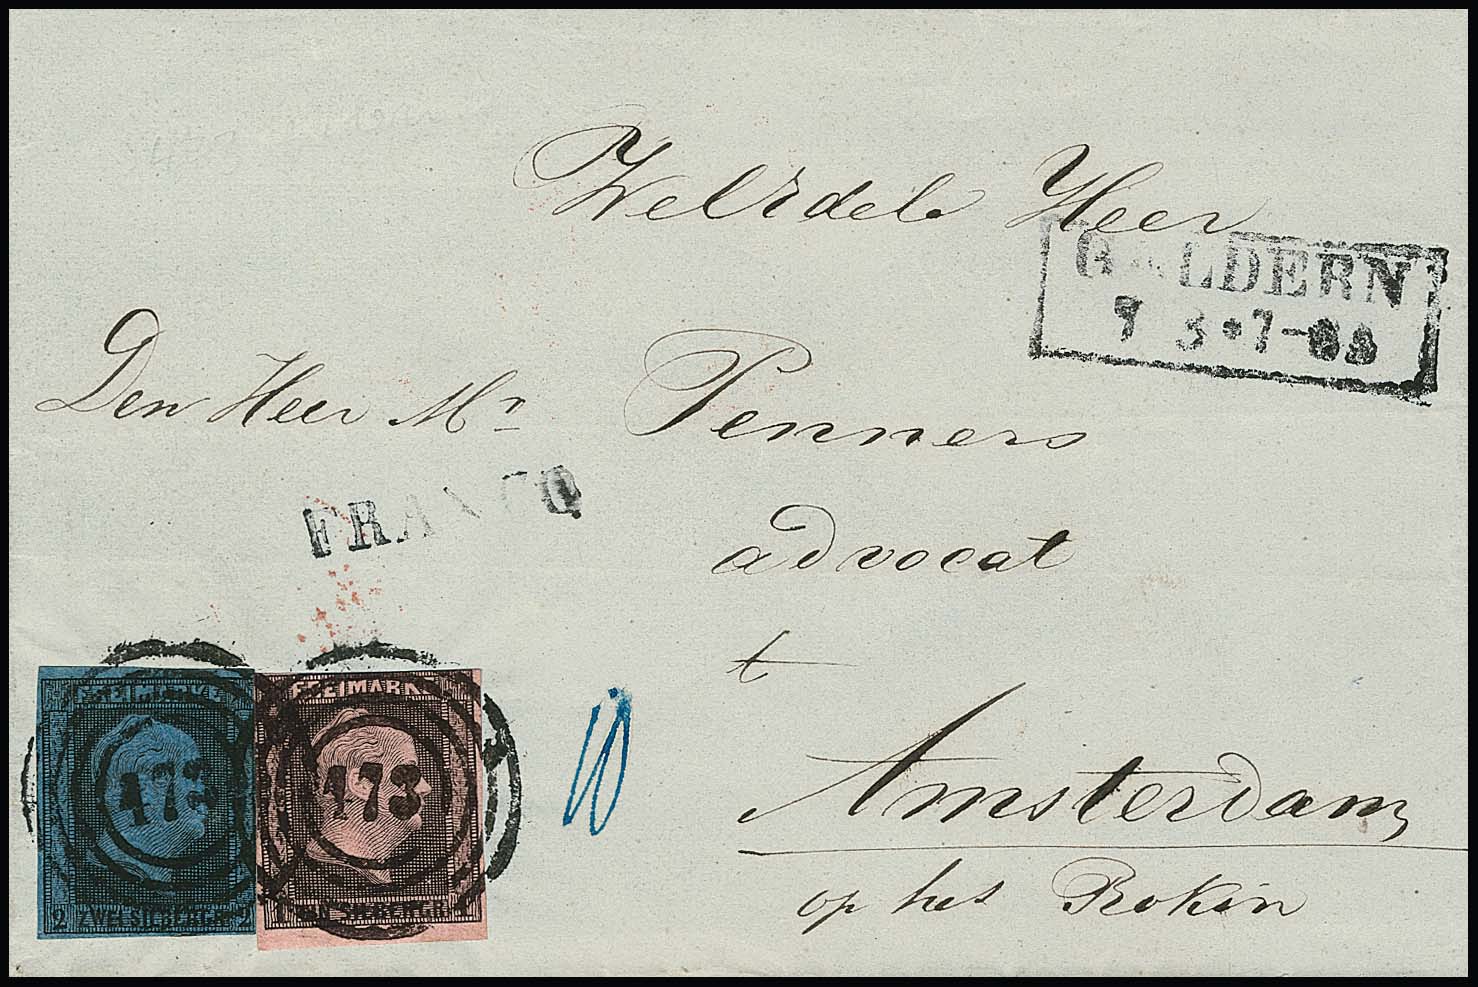 WelEdele Heer
GELDERN
7 3 * 7-8
Den Heer Mr Penners
FRANCO
advocat
t
Amsterdam
op het Rokin
10
FREIMARKE
473
2 ZWEI SILBERGR. 2
FREIMARKE
473
1 EIN SILBERGR. 1